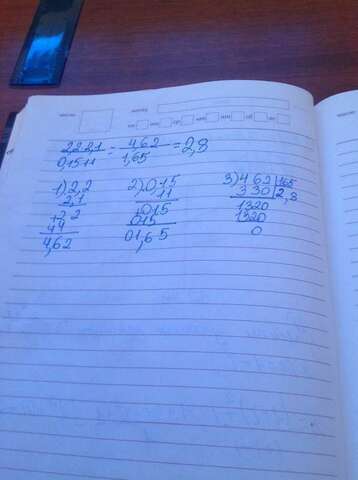 2,2·2,1 / 0,15·11 = 4,62 / 1,65 = 2,8
1) 2,2 2) 0,15 3) 4 62 | 165
2,1 11 3 30 | 2,8
22 015 1320
44 015 1320
4,62 01,65 0